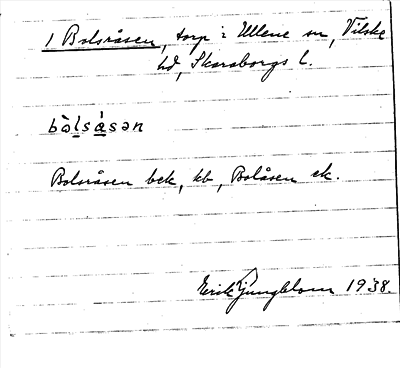 1 Bolsråsen, torp i Ullene sn, Vilske
hd, Skaraborgs l.
bòlsåsən
Bolsråsen bek, kb, Bolåsen ek.
Erik Ljungblom 1938.